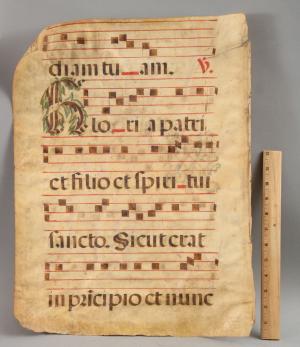 diam tu_am. V.
Glo_ri a patri
et filio et spiri_tui
sancto. Sicut erat
in pricipio et nunc